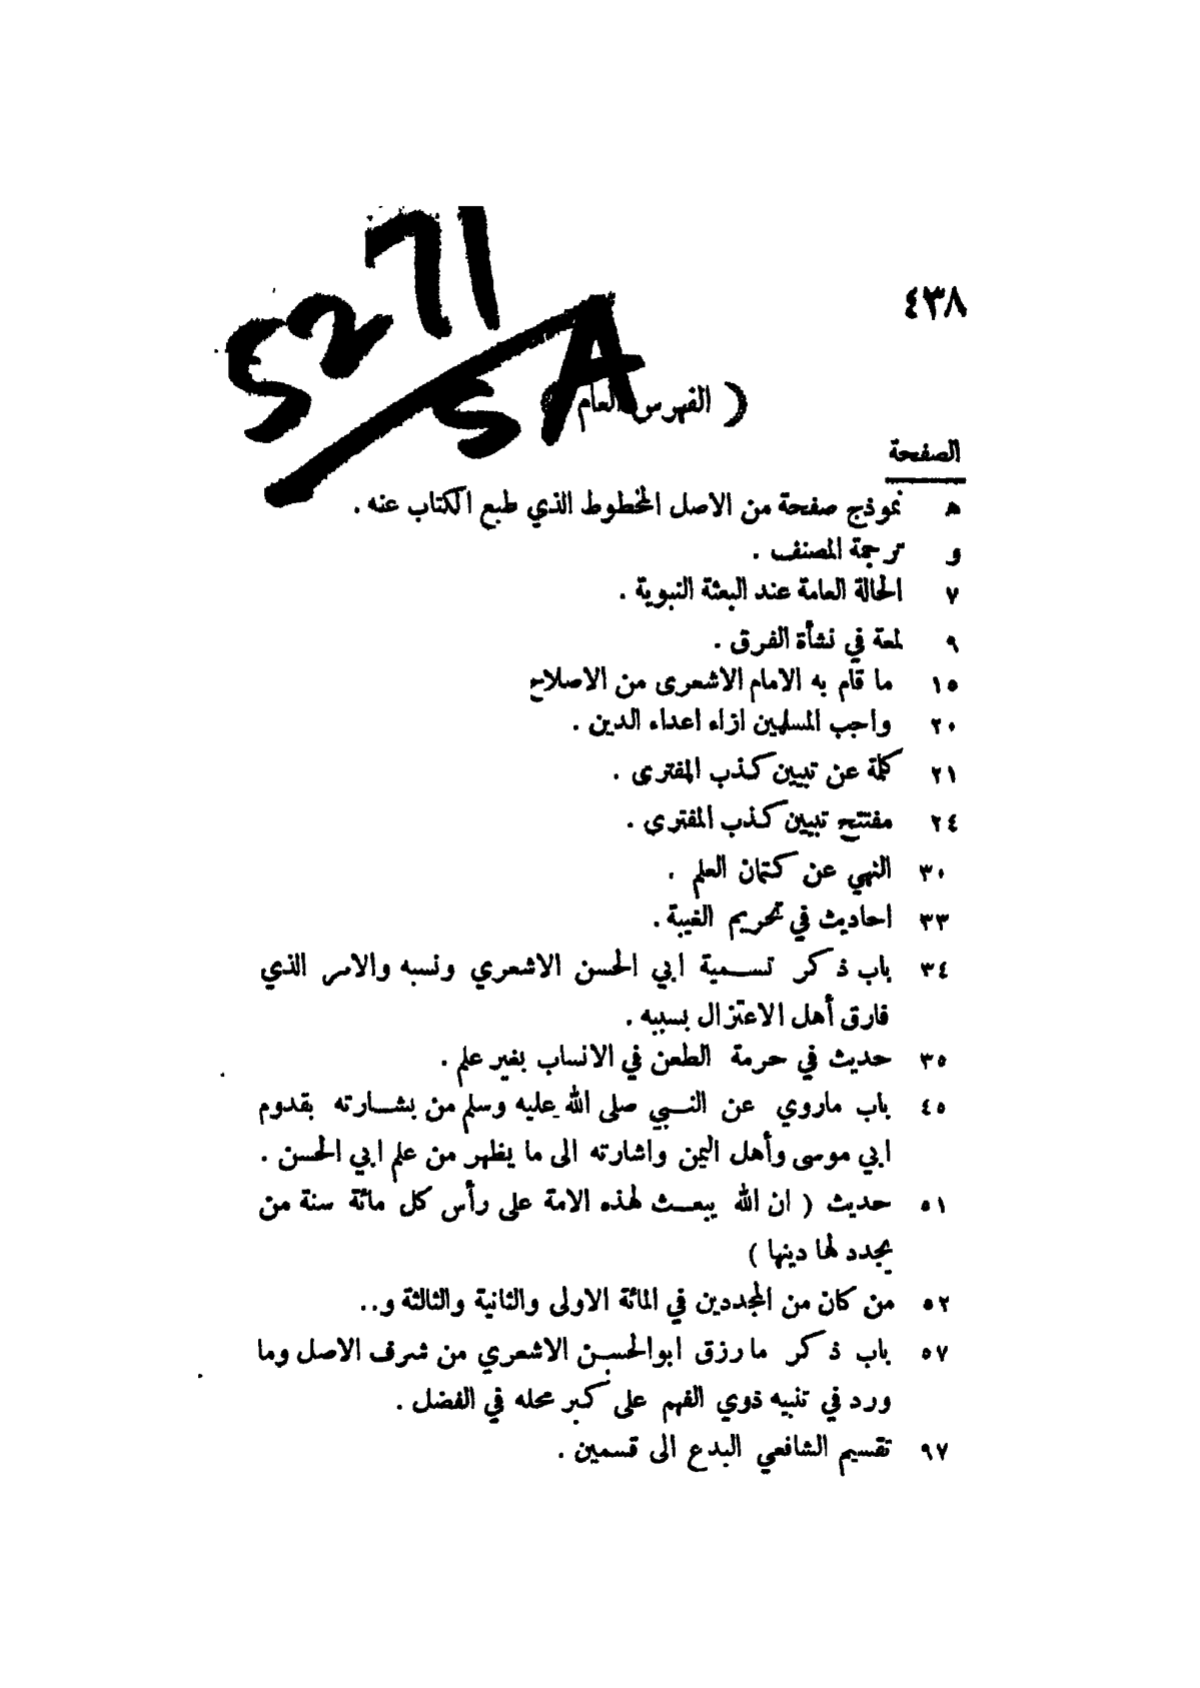 71
52
5A
٤٣٨
( الفهرس العام )
الصفحة
ه نموذج صفحة من الاصل المخطوط الذي طبع الكتاب عنه .
و ترجمة المصنف .
٧ الحالة العامة عند البعثة النبوية .
٩ لمعة في نشأة الفرق .
١٥ ما قام به الامام الاشعرى من الاصلاح
٢٠ واجب المسلمين ازاء اعداء الدين .
٢١ كلمة عن تبيين كذب المفترى .
٢٤ مفتتح تبيين كذب المفترى .
٣٠ النهي عن كتمان العلم .
٣٣ احاديث في تحريم الغيبة .
٣٤ باب ذكر تسمية ابي الحسن الاشعري ونسبه والامر الذي
فارق أهل الاعتزال بسببه .
٣٥ حديث في حرمة الطعن في الانساب بغير علم .
٤٥ باب ماروي عن النبي صلى الله عليه وسلم من بشارته بقدوم
ابي موسى وأهل اليمن واشارته الى ما يظهر من علم ابي الحسن .
٥١ حديث ( ان الله يبعث لهذه الامة على رأس كل مائة سنة من
يجدد لها دينها )
٥٢ من كان من المجددين في المائة الاولى والثانية والثالثة و..
٥٧ باب ذكر ما رزق ابوالحسن الاشعري من شرف الاصل وما
ورد في تنبيه ذوي الفهم على كبر محله في الفضل .
٩٧ تقسيم الشافعي البدع الى قسمين .